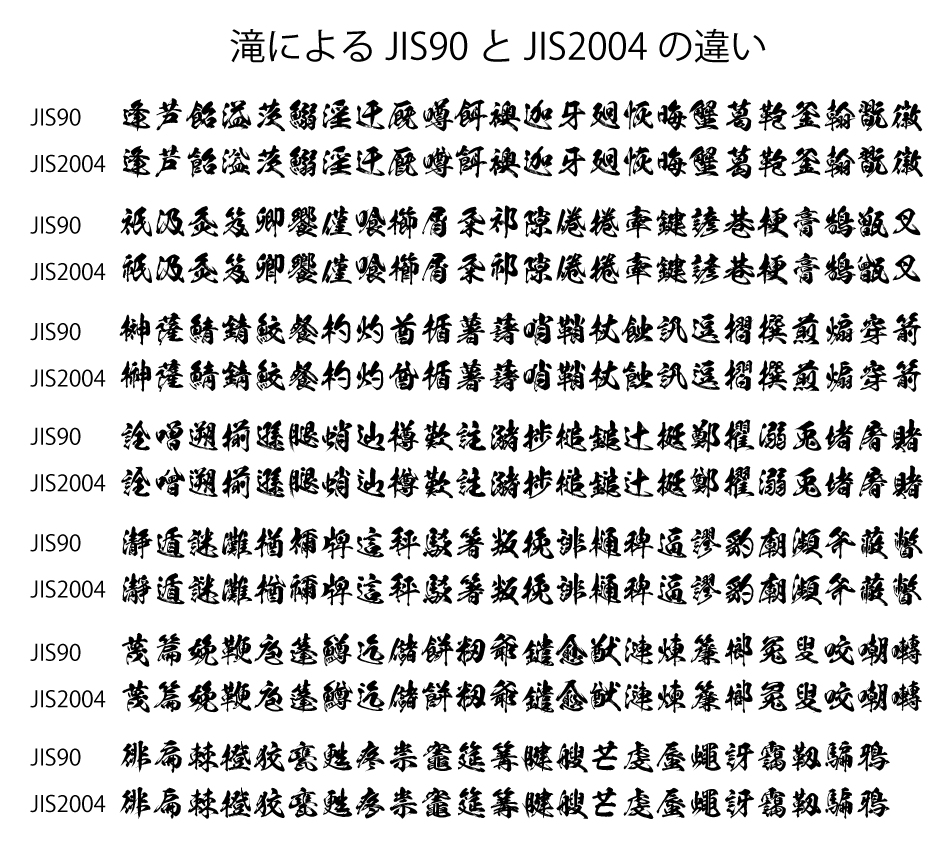 滝による JIS90 と JIS2004 の違い
JIS90 逢芦飴溢茨鰯淫迂厩噂餌襖迦牙廻恢晦蟹葛鞄釜翰翫徽
JIS2004 逢芦飴溢茨鰯淫迂厩噂餌襖迦牙廻恢晦蟹葛鞄釜翰翫徽
JIS90 祇汲灸笈卿饗僅喰櫛屑粂祁隙倦捲牽鍵諺巷梗膏鵠甑叉
JIS2004 祇汲灸笈卿饗僅喰櫛屑粂祁隙倦捲牽鍵諺巷梗膏鵠甑叉
JIS90 榊薩鯖錆鮫餐杓灼酋楯薯藷哨鞘杖蝕訊逗摺撰煎煽穿箭
JIS2004 榊薩鯖錆鮫餐杓灼酋楯薯藷哨鞘杖蝕訊逗摺撰煎煽穿箭
JIS90 詮噌遡揃遜腿蛸辿樽歎註瀦捗槌鎚辻挺鄭擢溺兎堵屠賭
JIS2004 詮噌遡揃遜腿蛸辿樽歎註瀦捗槌鎚辻挺鄭擢溺兎堵屠賭
JIS90 瀞遁謎灘楢禰牌這秤駁箸叛挽誹樋稗逼謬豹廟瀕斧蔽瞥
JIS2004 瀞遁謎灘楢禰牌這秤駁箸叛挽誹樋稗逼謬豹廟瀕斧蔽瞥
JIS90 蔑篇娩鞭庖蓬鱒迄儲餅籾爺鑓愈猷漣煉簾榔冤叟咬嘲囀
JIS2004 蔑篇娩鞭庖蓬鱒迄儲餅籾爺鑓愈猷漣煉簾榔冤叟咬嘲囀
JIS90 徘扁棘橙狡甕甦疼祟竈筵篝腱艘芒虔蜃蠅訝靄靱騙鴉
JIS2004 徘扁棘橙狡甕甦疼祟竈筵篝腱艘芒虔蜃蠅訝靄靱騙鴉